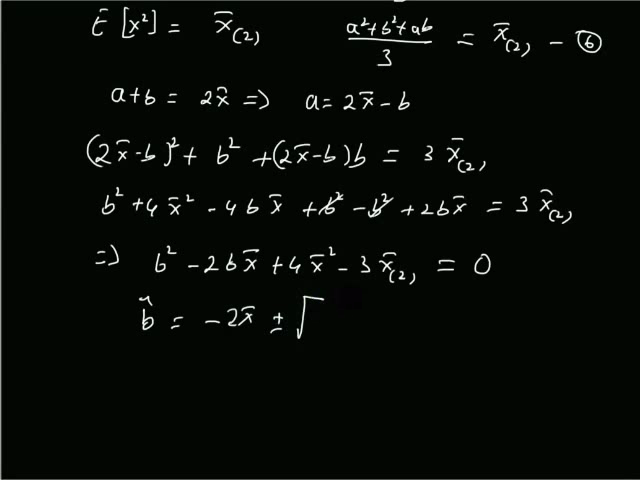 E[x²] = x̄₍₂₎   (a²+b²+ab)/3 = x̄₍₂₎ – ⑥
a+b = 2x̄ => a = 2x̄ – b
(2x̄-b)² + b² + (2x̄-b)b = 3 x̄₍₂₎
b² + 4x̄² - 4bx̄ + b² - b² + 2bx̄ = 3 x̄₍₂₎
=> b² - 2bx̄ + 4x̄² - 3x̄₍₂₎ = 0
b̂ = - 2x̄ ± √